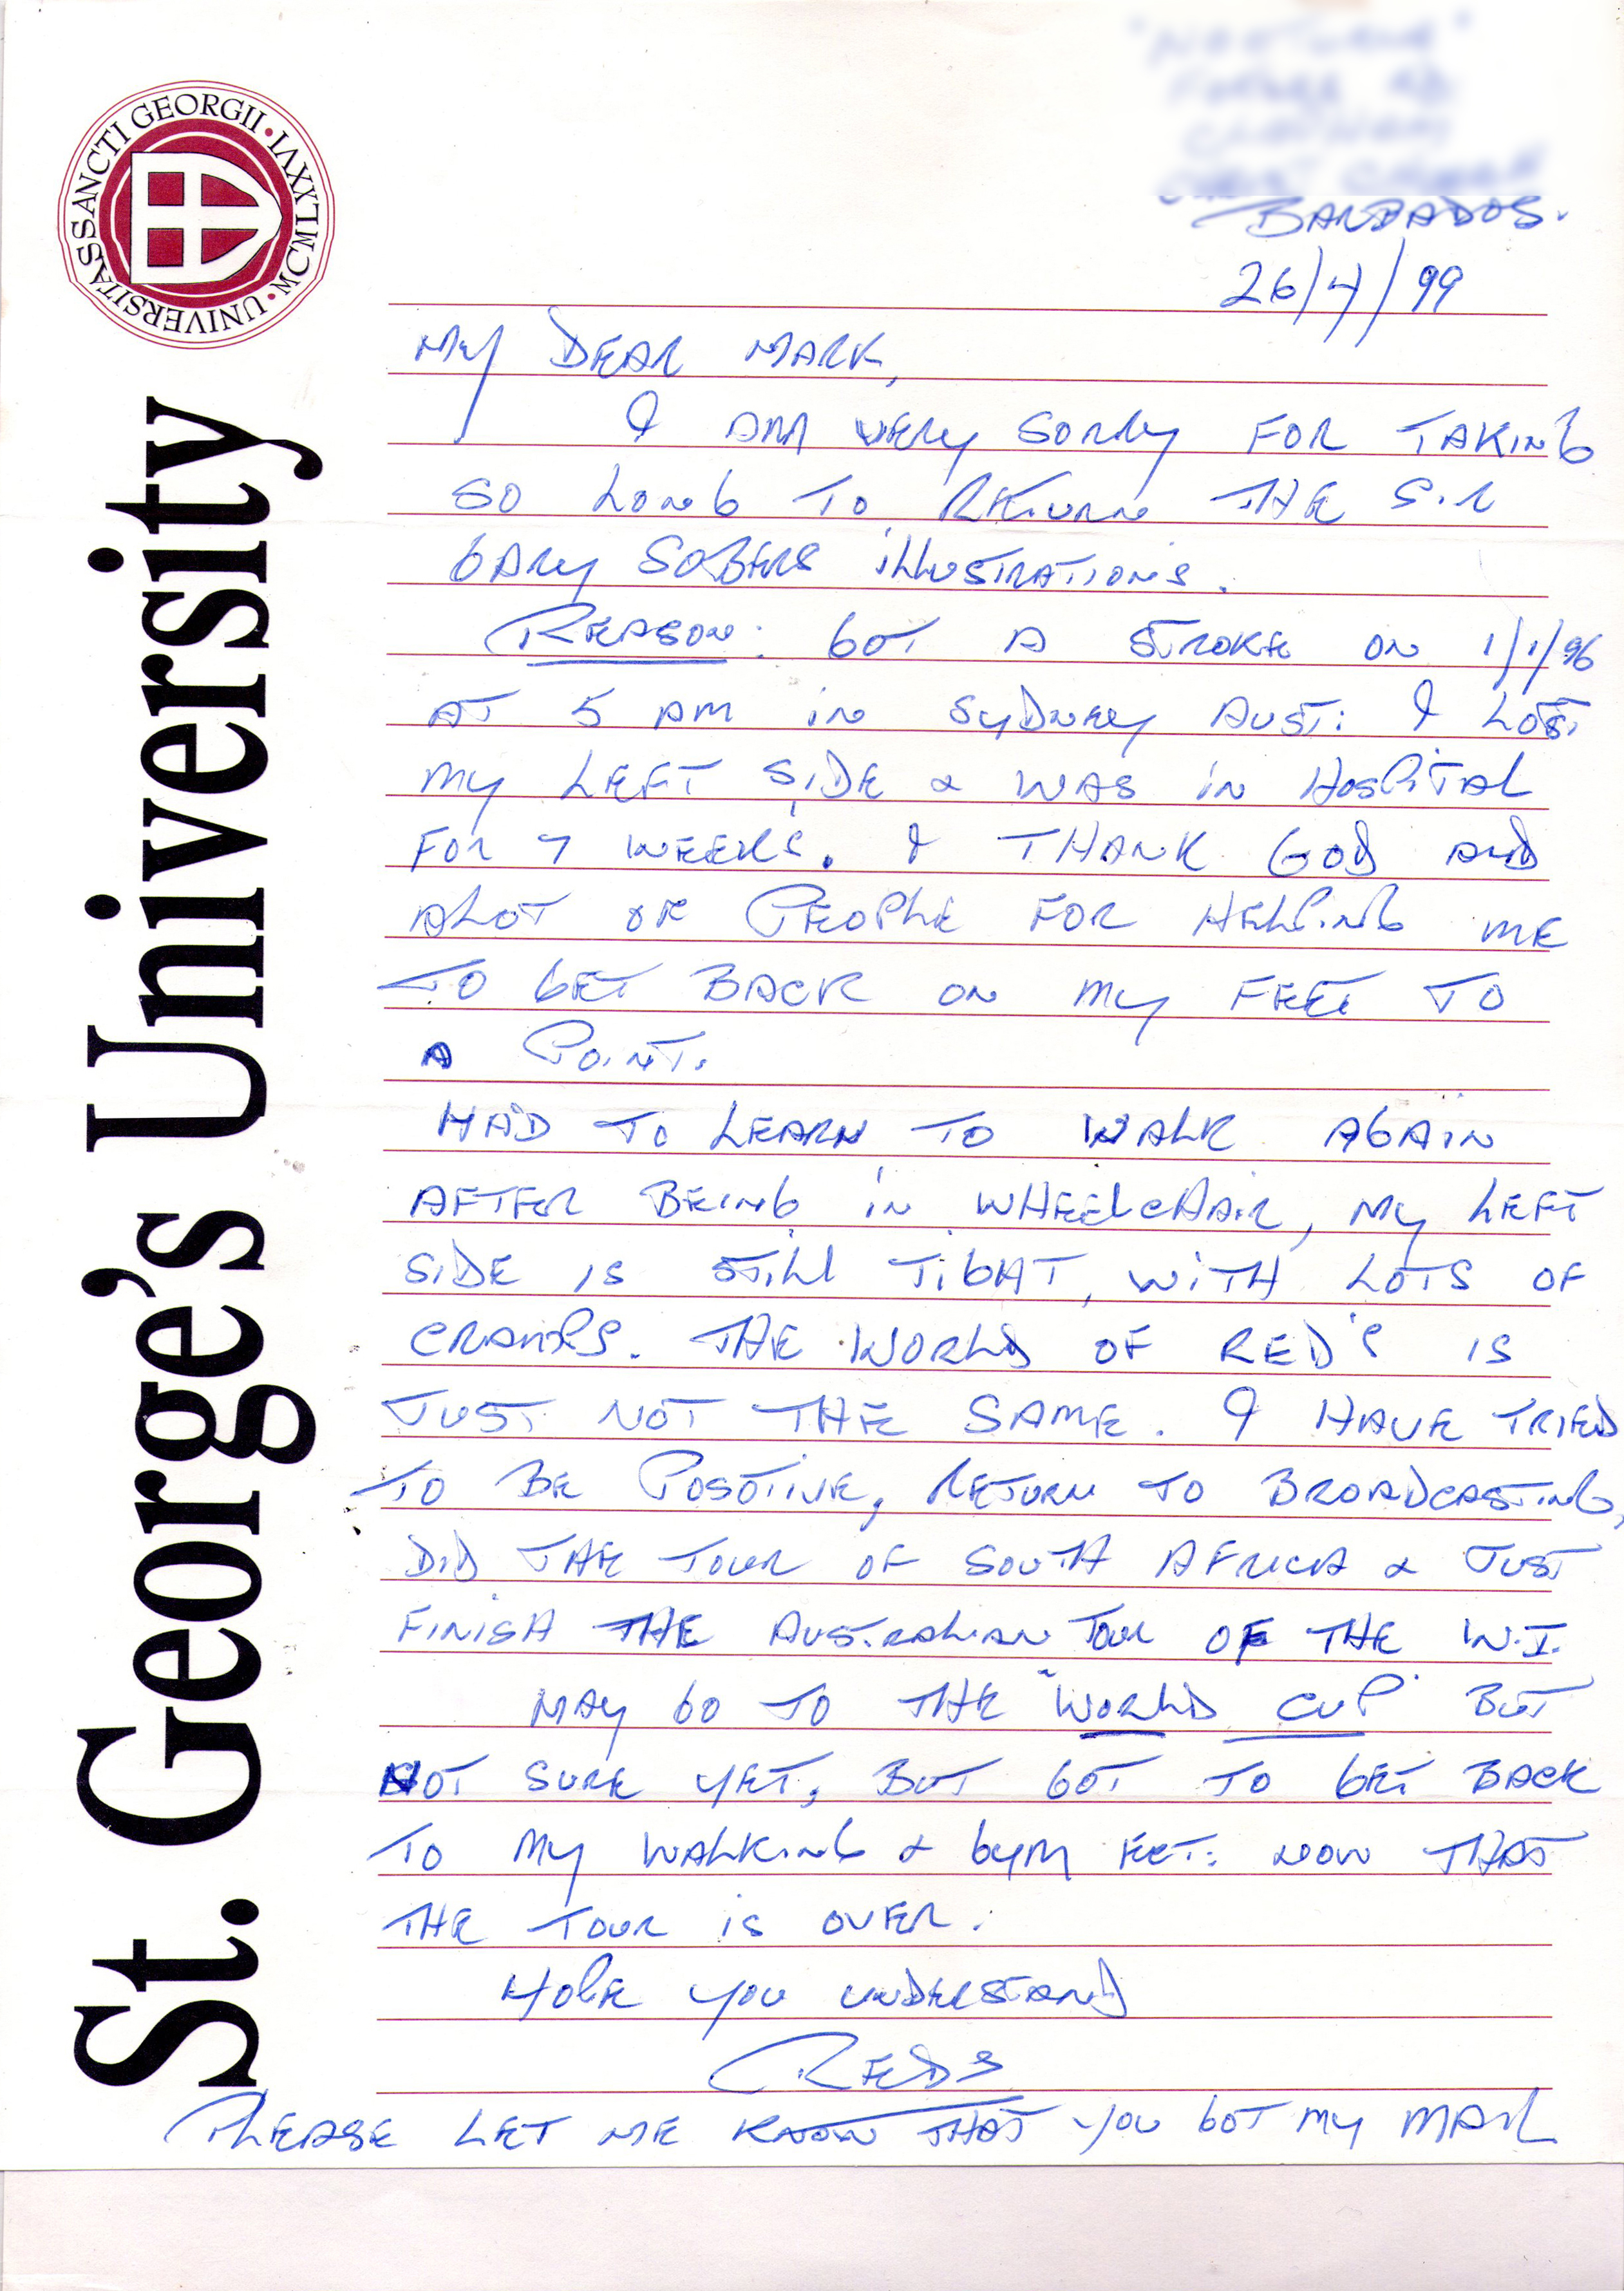 UNIVERSITAS SANCTI GEORGII • MCMLXXVI •
St. George's University
BARBADOS.
26/4/99
MY DEAR MARK,
I AM VERY SORRY FOR TAKING
SO LONG TO RETURN THE SIR
GARY SOBERS ILLUSTRATIONS.
REASON: GOT A STROKE ON 1/1/96
AT 5 AM IN SYDNEY AUST: I LOST
MY LEFT SIDE & WAS IN HOSPITAL
FOR 7 WEEKS. I THANK GOD AND
ALOT OF PEOPLE FOR HELPING ME
TO GET BACK ON MY FEET TO
A POINT.
HAD TO LEARN TO WALK AGAIN
AFTER BEING IN WHEELCHAIR, MY LEFT
SIDE IS STILL TIGHT, WITH LOTS OF
CRAMPS. THE WORLD OF RED'S IS
JUST NOT THE SAME. I HAVE TRIED
TO BE POSOTIVE, RETURN TO BROADCASTING,
DID THE TOUR OF SOUTH AFRICA & JUST
FINISH THE AUSTRALIAN TOUR OF THE W.I.
MAY GO TO THE "WORLD CUP" BUT
NOT SURE YET, BUT GOT TO GET BACK
TO MY WALKING & GYM NOW THAT
THE TOUR IS OVER.
HOPE YOU UNDERSTAND
REDS
PLEASE LET ME KNOW THAT YOU GOT MY MAIL